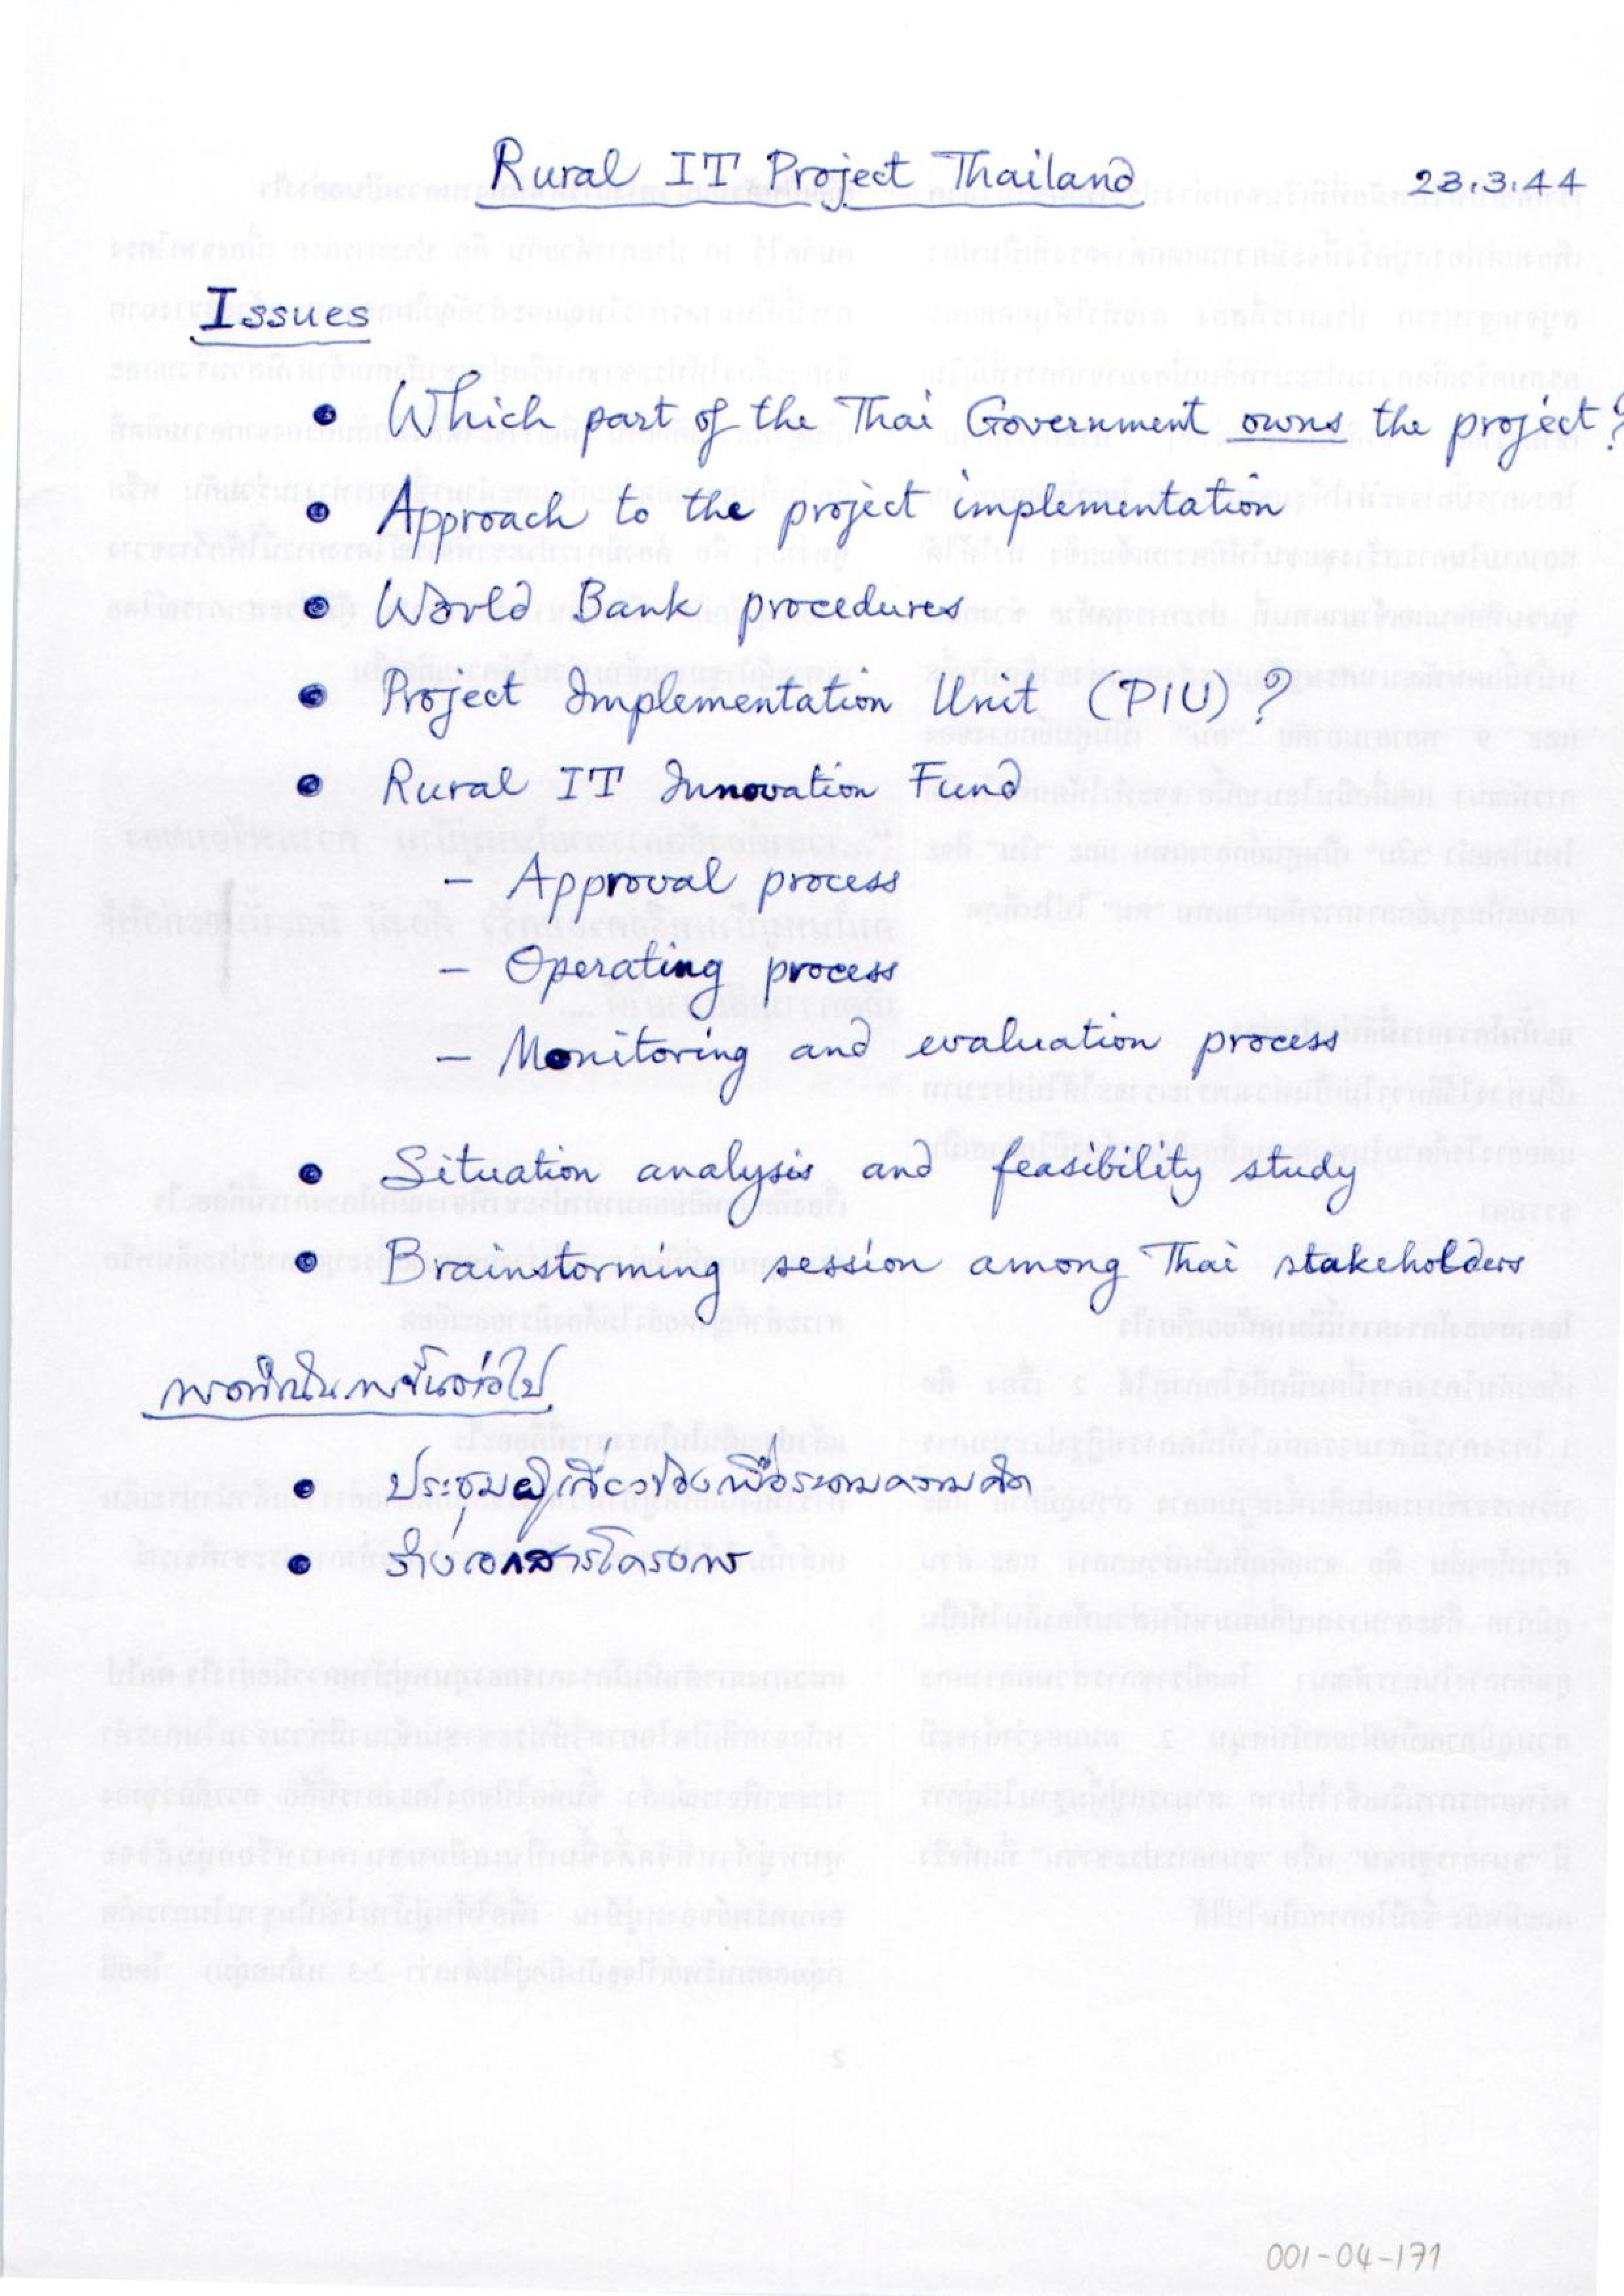 Rural IT Project Thailand
23.3.44
Issues
• Which part of the Thai Government owns the project?
• Approach to the project implementation
• World Bank procedures
• Project Implementation Unit (PIU)?
• Rural IT Innovation Fund
– Approval process
– Operating process
– Monitoring and evaluation process
• Situation analysis and feasibility study
• Brainstorming session among Thai stakeholders
การดำเนินการขั้นต่อไป
• ประชุมผู้เกี่ยวข้องเพื่อระดมความคิด
• ร่างเอกสารโครงการ
001-04-171